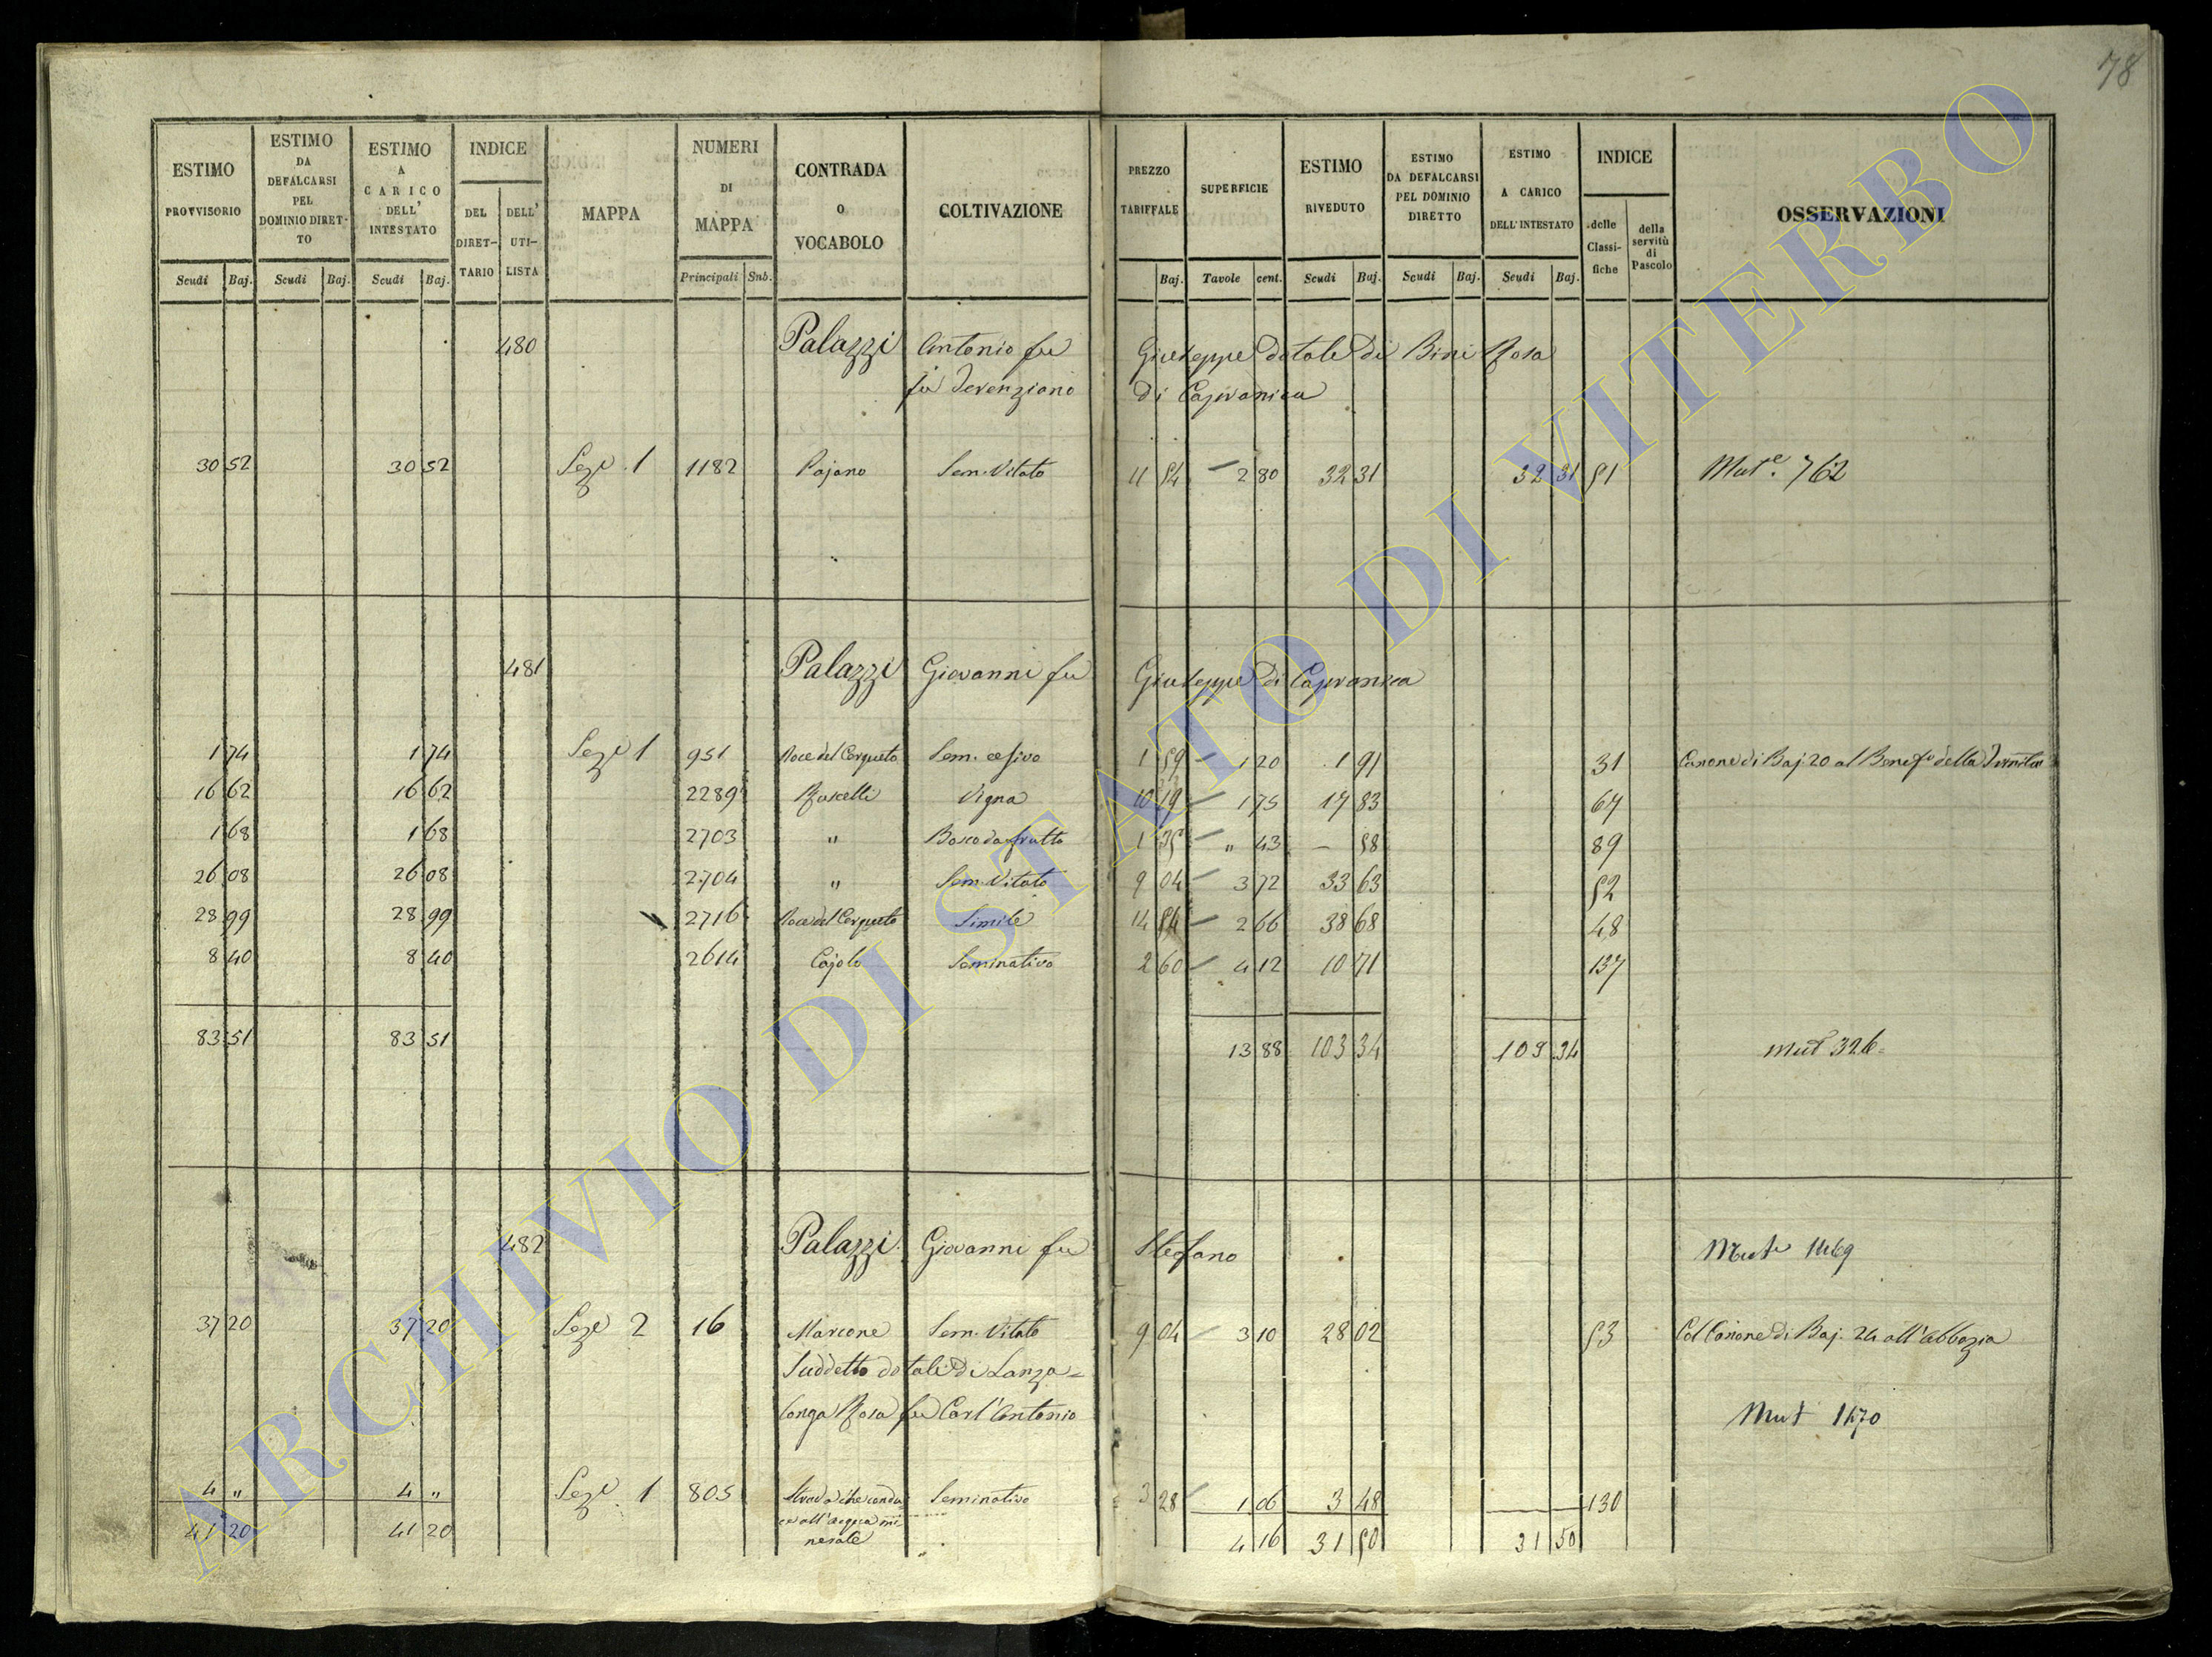 78
ESTIMO PROVVISORIO
ESTIMO DA DEFALCARSI PEL DOMINIO DIRETTO
ESTIMO A CARICO DELL' INTESTATO
INDICE
DEL DIRETTARIO
DELL' UTILISTA
MAPPA
NUMERI DI MAPPA
CONTRADA O VOCABOLO
COLTIVAZIONE
PREZZO TARIFFALE
SUPERFICIE
ESTIMO RIVEDUTO
ESTIMO DA DEFALCARSI PEL DOMINIO DIRETTO
ESTIMO A CARICO DELL' INTESTATO
INDICE
delle Classifiche
della servitù di Pascolo
OSSERVAZIONI
Scudi Baj. Scudi Baj. Scudi Baj. Principali Sub. Baj. Tavole cent. Scudi Baj. Scudi Baj. Scudi Baj.
480 Palazzi Antonio fu Giuseppe dotale di Bini Rosa
fu Terenziano di Capranica
30 52 30 52 Seze. 1 1182 Pajano Sem. Vitato 11 54 2 80 32 31 32 31 51 Mut.e 762
481 Palazzi Giovanni fu Giuseppe di Capranica
1 74 1 74 Seze 1 951 Noce del Cerqueto Sem. cesivo 1 59 1 20 1 91 31 Canone di Baj 20 al Benefo della
16 62 16 62 2289 Ruscelli Vigna 10 19 1 75 17 83 67
1 68 1 68 2703 " Bosco da frutto 1 35 " 43 — 58 89
26 08 26 08 2704 " Sem. Vitato 9 04 3 72 33 63 52
28 99 28 99 2716 Noce del Cerqueto Simile 14 54 2 66 38 68 48
8 40 8 40 2614 Cajolo Seminativo 2 60 4 12 10 71 137
83 51 83 51 13 88 103 34 103 34 Mut 326
482 Palazzi Giovanni fu Stefano Mute 1469
37 20 37 20 Seze 2 16 Marcone Sem. Vitato 9 04 3 10 28 02 53 Col Canone di Baj. 24 all'Abbazia
Suddetto dotale di Lanza=
longa Rosa fu Carl'Antonio Mut 1470
4 " 4 " Seze. 1 805 Strada che condu Seminativo 3 28 1 06 3 48 130
ce all'acqua mi
nerale "
41 20 41 20 4 16 31 50 31 50
ARCHIVIO DI STATO DI VITERBO